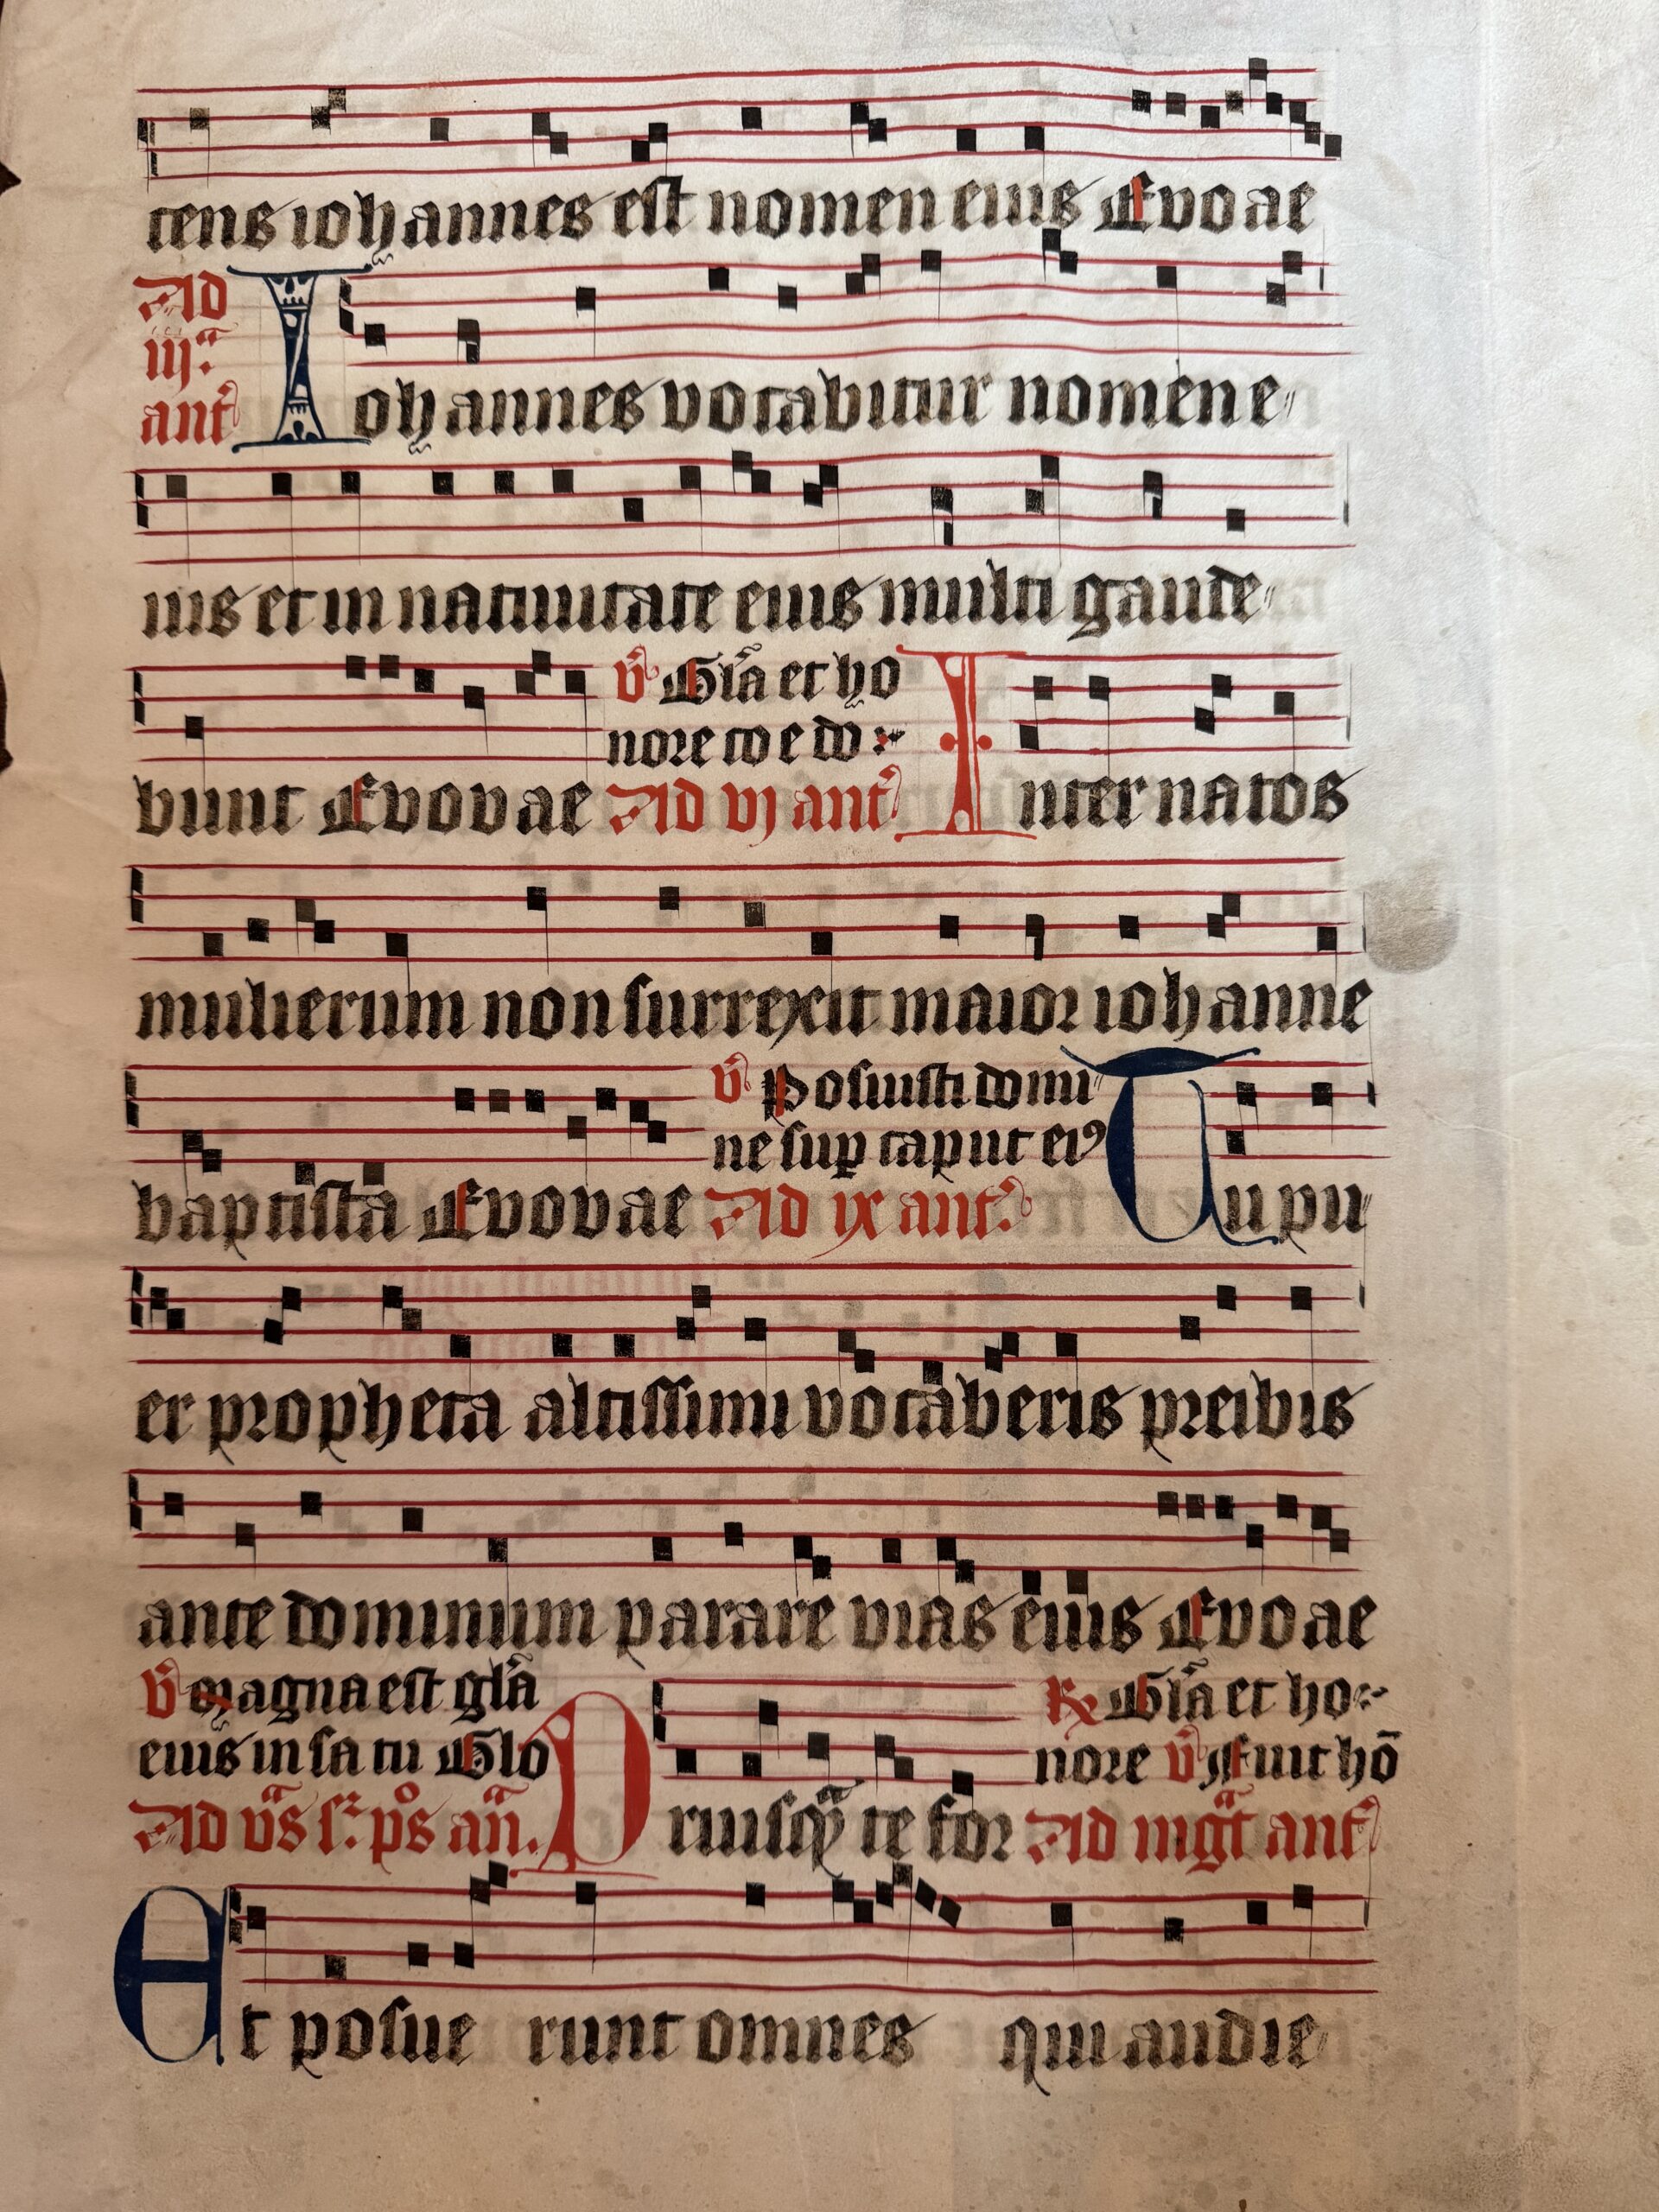 cens iohannes est nomen eius Evo ae
Ad
iij.ª
ant
Iohannes vocabitur nomen e
ius et in natiuitate eius multi gaude
bunt Evovae
v̄ Gl̄a et ho
nore co e do
Ad vj ant
Inter natos
mulierum non surrexit maior iohanne
baptista Evovae
v̄ Posuisti domi
ne sup caput eiꝰ
Ad ix ant.
Tu pu
er propheta altissimi vocaberis preibis
ante dominum parare vias eius Evo ae
v̄ Magna est gl̄a
eius in sa tu Glo
Ad v̄s
Priusqꝫ te for
℞ Gl̄a et ho
nore v̄ Fuit hō
Ad mgt ant
Et posue runt omnes qui audie